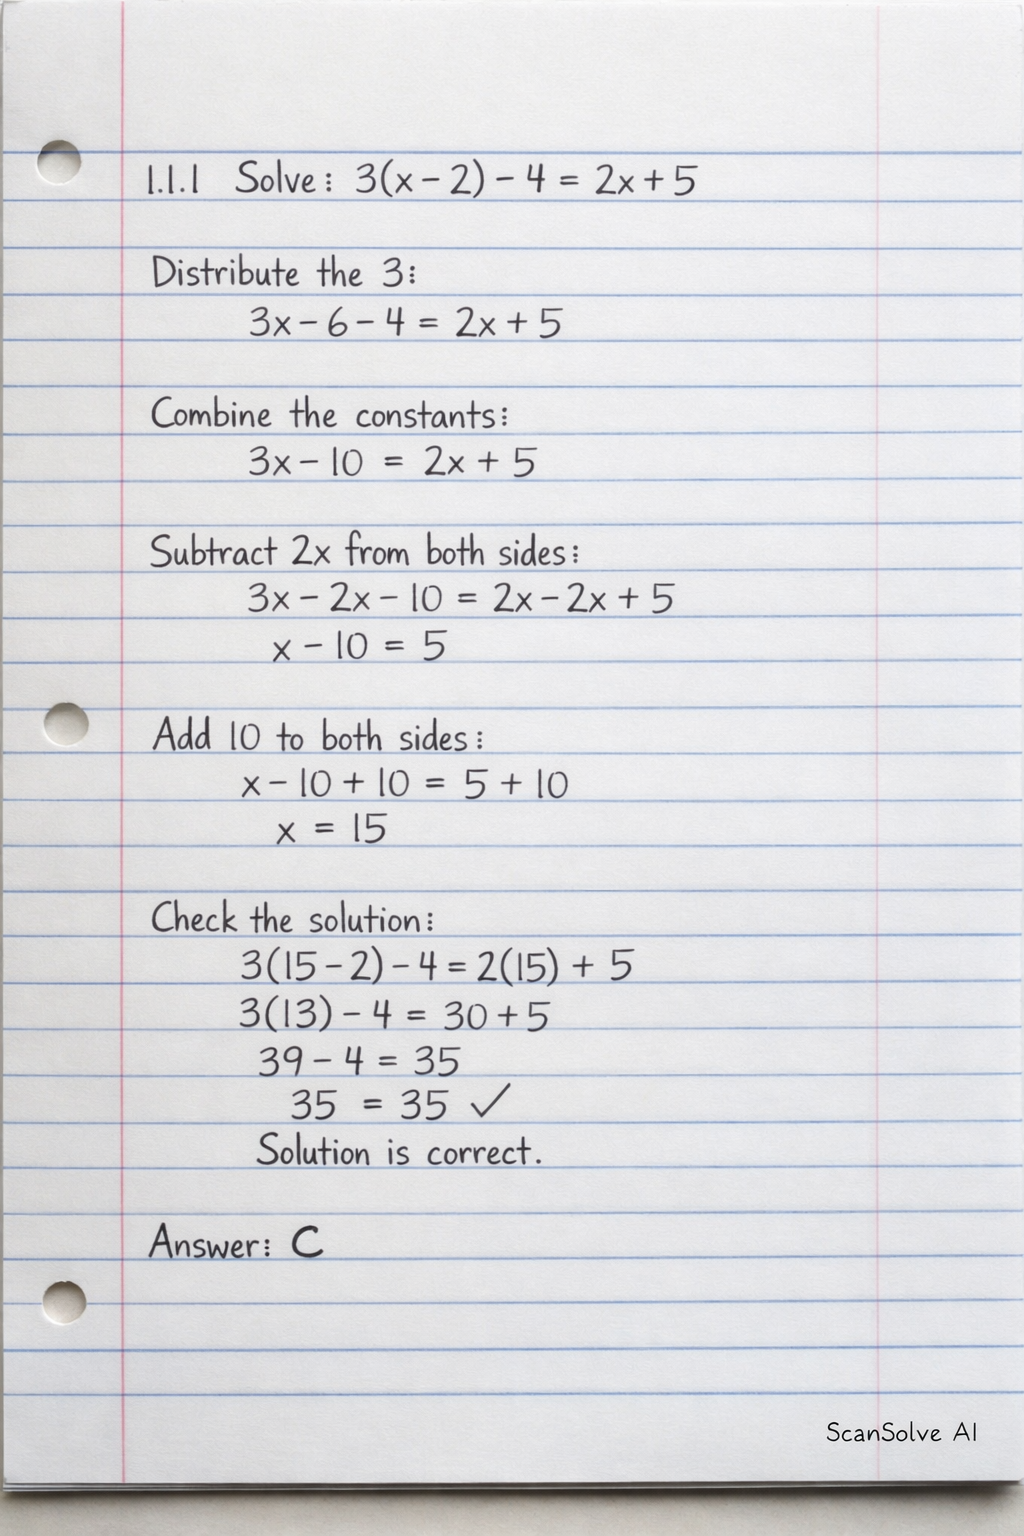 1.1.1 Solve: 3(x - 2) - 4 = 2x + 5
Distribute the 3:
3x - 6 - 4 = 2x + 5
Combine the constants:
3x - 10 = 2x + 5
Subtract 2x from both sides:
3x - 2x - 10 = 2x - 2x + 5
x - 10 = 5
Add 10 to both sides:
x - 10 + 10 = 5 + 10
x = 15
Check the solution:
3(15 - 2) - 4 = 2(15) + 5
3(13) - 4 = 30 + 5
39 - 4 = 35
35 = 35 ✓
Solution is correct.
Answer: C
ScanSolve AI